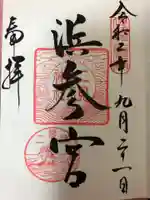 令和二年九月二十一日
浜参宮
奉拝